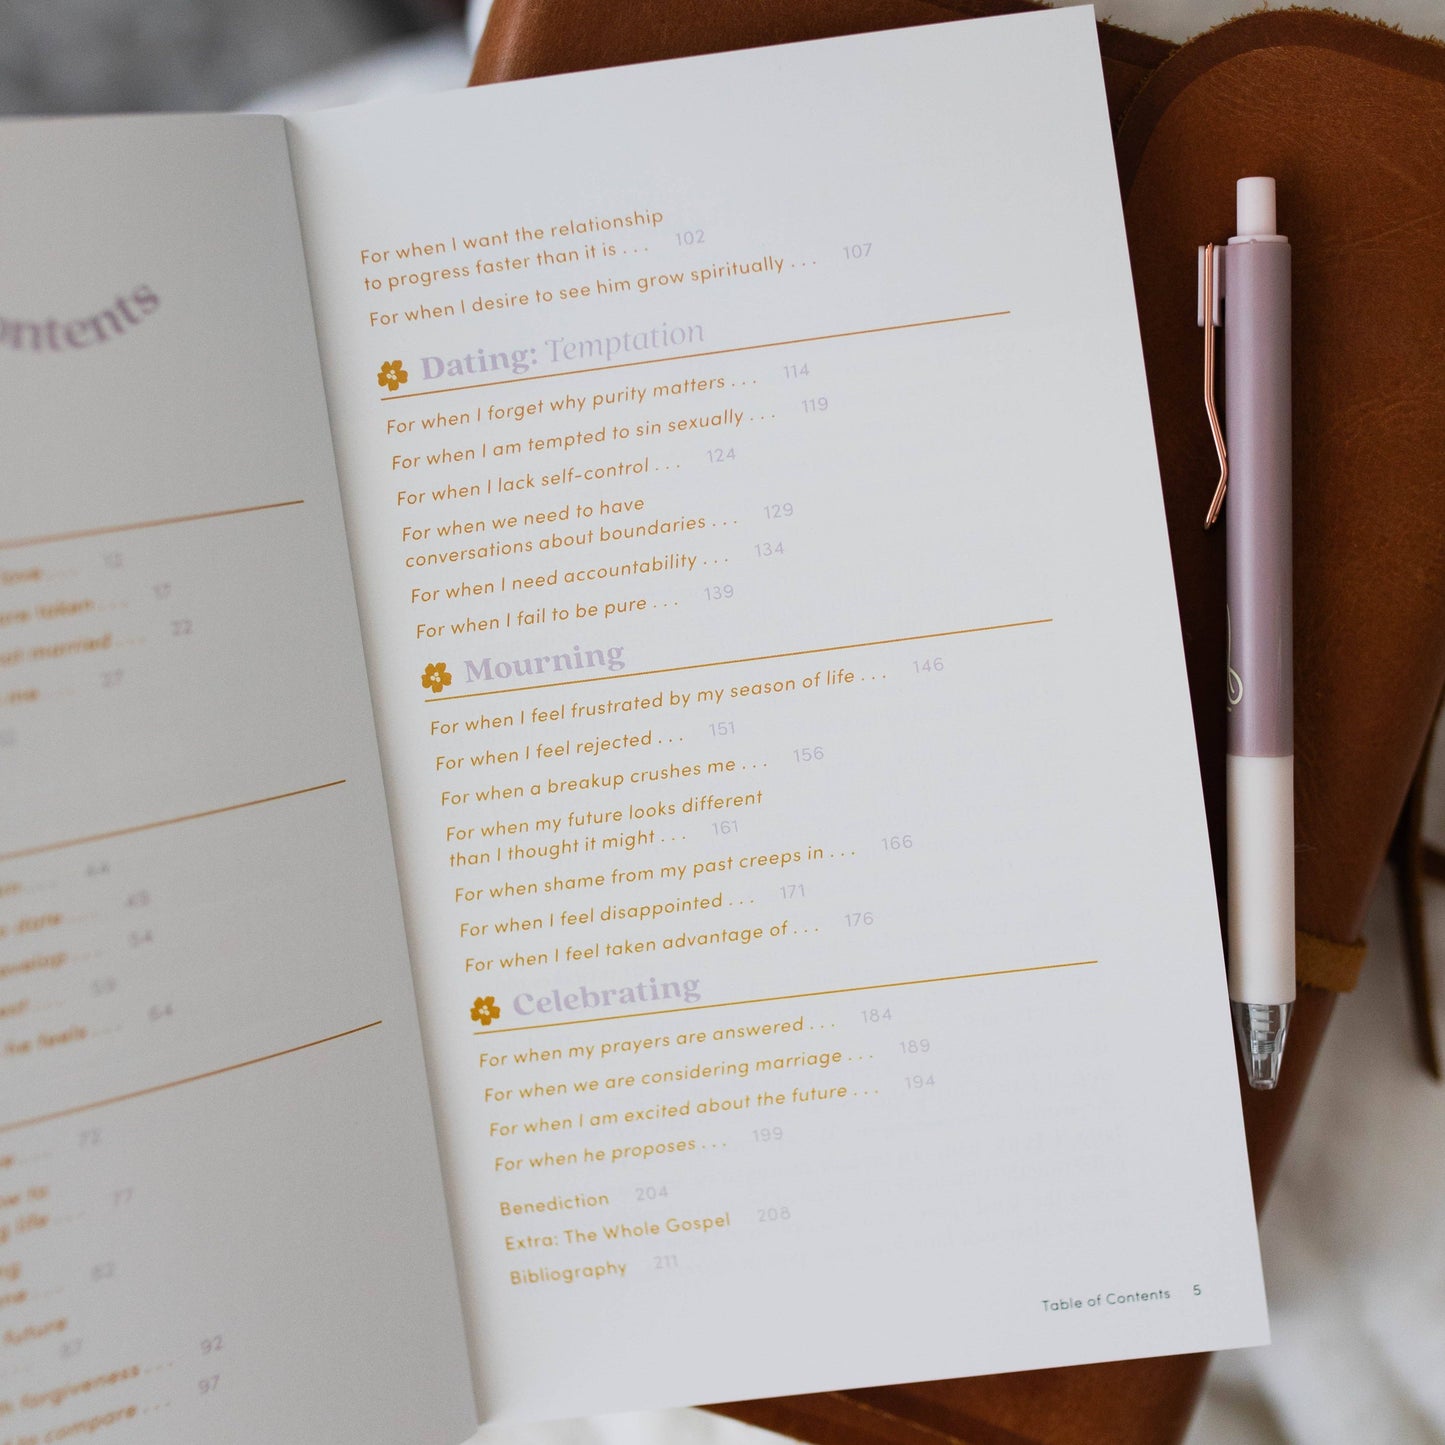 ontents
love . . . 12
17
not married . . . 22
me . . . 27
44
date . . . 49
develop . . . 54
59
he feels . . . 64
72
life . . . 77
82
future
87
forgiveness . . . 92
compare . . . 97
For when I want the relationship
to progress faster than it is . . . 102
For when I desire to see him grow spiritually . . . 107
Dating: Temptation
For when I forget why purity matters . . . 114
For when I am tempted to sin sexually . . . 119
For when I lack self-control . . . 124
For when we need to have
conversations about boundaries . . . 129
For when I need accountability . . . 134
For when I fail to be pure . . . 139
Mourning
For when I feel frustrated by my season of life . . . 146
For when I feel rejected . . . 151
For when a breakup crushes me . . . 156
For when my future looks different
than I thought it might . . . 161
For when shame from my past creeps in . . . 166
For when I feel disappointed . . . 171
For when I feel taken advantage of . . . 176
Celebrating
For when my prayers are answered . . . 184
For when we are considering marriage . . . 189
For when I am excited about the future . . . 194
For when he proposes . . . 199
Benediction 204
Extra: The Whole Gospel 208
Bibliography 211
Table of Contents 5